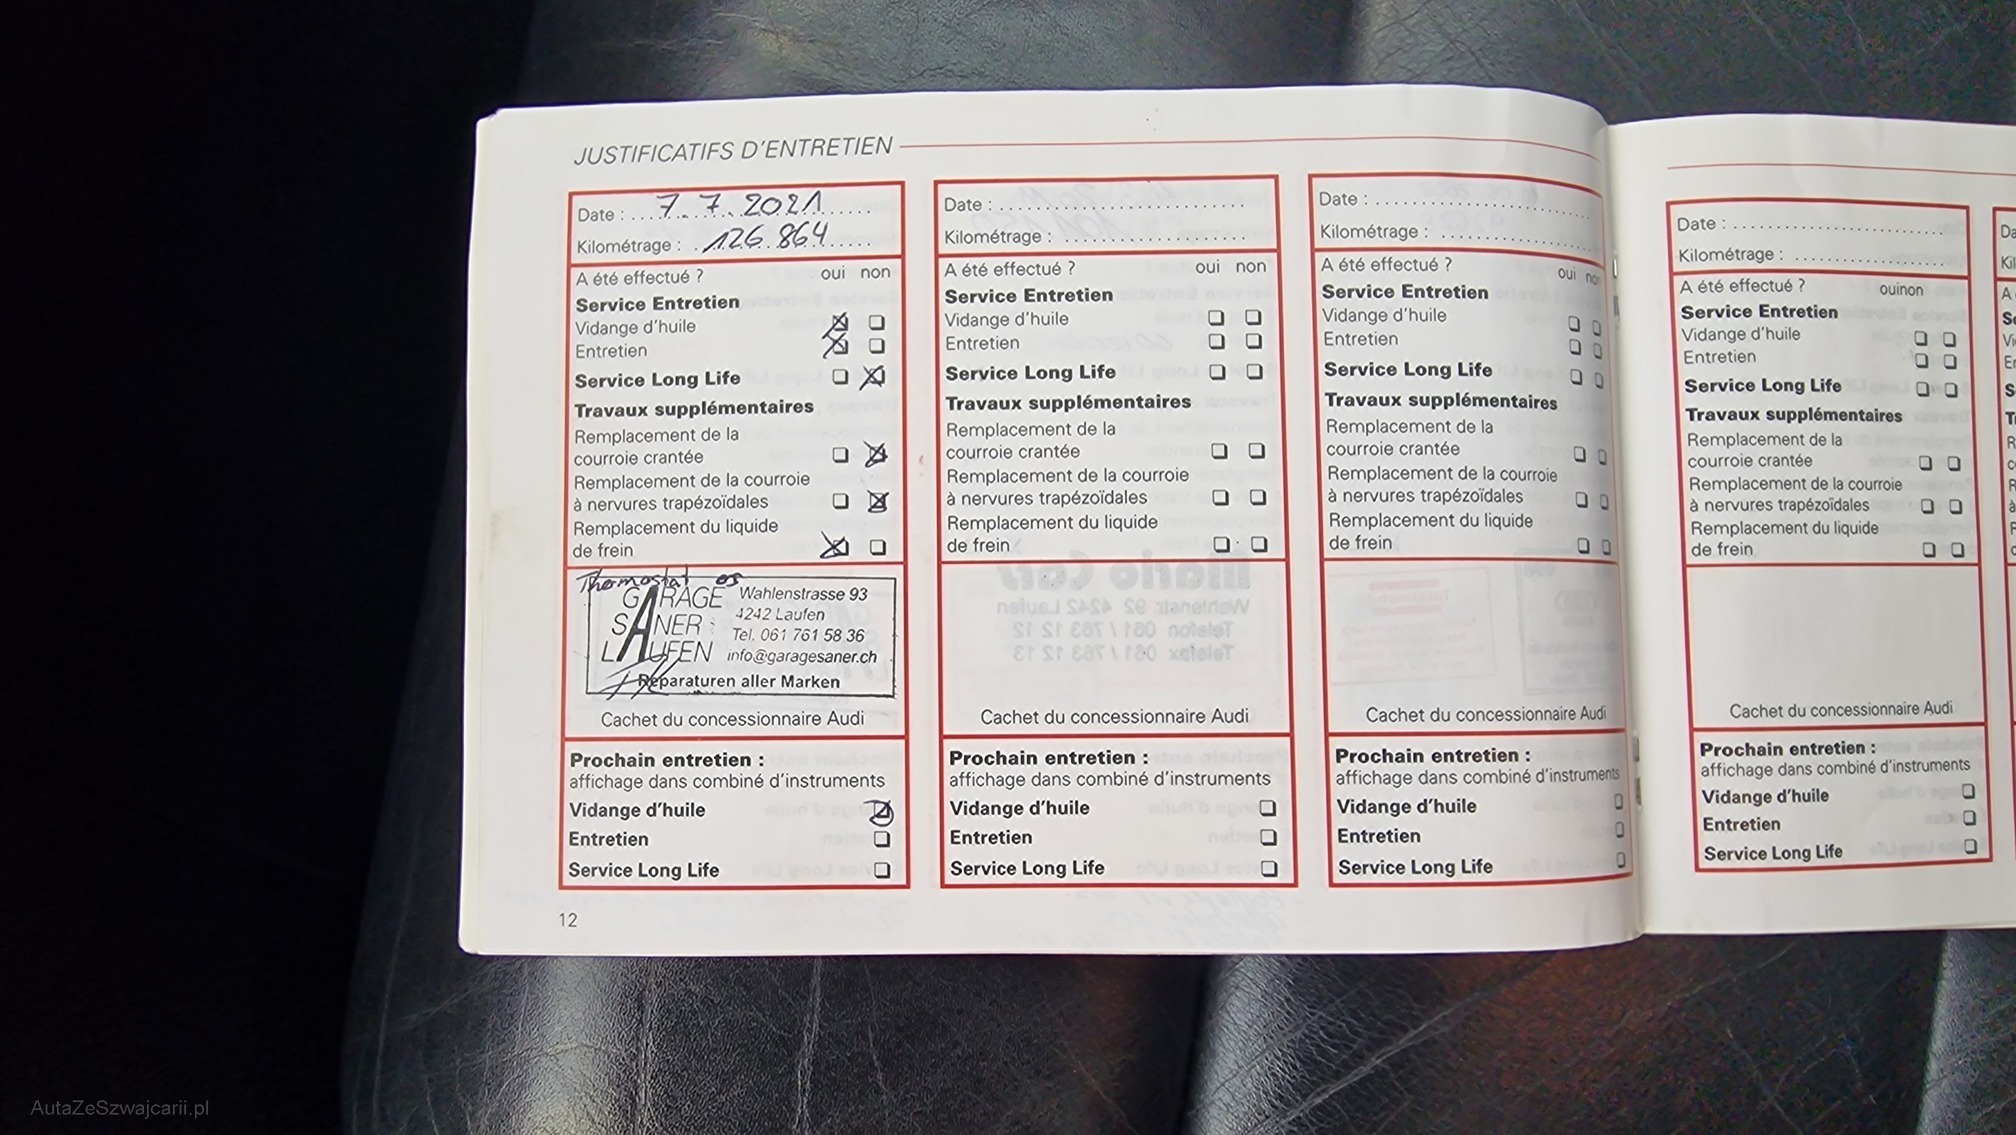 JUSTIFICATIFS D'ENTRETIEN
Date : 7.7.2021
Kilométrage : 126.864
A été effectué ? oui non
Service Entretien
Vidange d'huile
Entretien
Service Long Life
Travaux supplémentaires
Remplacement de la
courroie crantée
Remplacement de la courroie
à nervures trapézoïdales
Remplacement du liquide
de frein
Thermostat
GARAGE
SANER
LAUFEN
Wahlenstrasse 93
4242 Laufen
Tel. 061 761 58 36
info@garagesaner.ch
Reparaturen aller Marken
Cachet du concessionnaire Audi
Prochain entretien :
affichage dans combiné d'instruments
Vidange d'huile
Entretien
Service Long Life
12
Date :
Kilométrage :
A été effectué ? oui non
Service Entretien
Vidange d'huile
Entretien
Service Long Life
Travaux supplémentaires
Remplacement de la
courroie crantée
Remplacement de la courroie
à nervures trapézoïdales
Remplacement du liquide
de frein
Cachet du concessionnaire Audi
Prochain entretien :
affichage dans combiné d'instruments
Vidange d'huile
Entretien
Service Long Life
Date :
Kilométrage :
A été effectué ? oui non
Service Entretien
Vidange d'huile
Entretien
Service Long Life
Travaux supplémentaires
Remplacement de la
courroie crantée
Remplacement de la courroie
à nervures trapézoïdales
Remplacement du liquide
de frein
Cachet du concessionnaire Audi
Prochain entretien :
affichage dans combiné d'instruments
Vidange d'huile
Entretien
Service Long Life
Date :
Kilométrage :
A été effectué ? ouinon
Service Entretien
Vidange d'huile
Entretien
Service Long Life
Travaux supplémentaires
Remplacement de la
courroie crantée
Remplacement de la courroie
à nervures trapézoïdales
Remplacement du liquide
de frein
Cachet du concessionnaire Audi
Prochain entretien :
affichage dans combiné d'instruments
Vidange d'huile
Entretien
Service Long Life
AutaZeSzwajcarii.pl